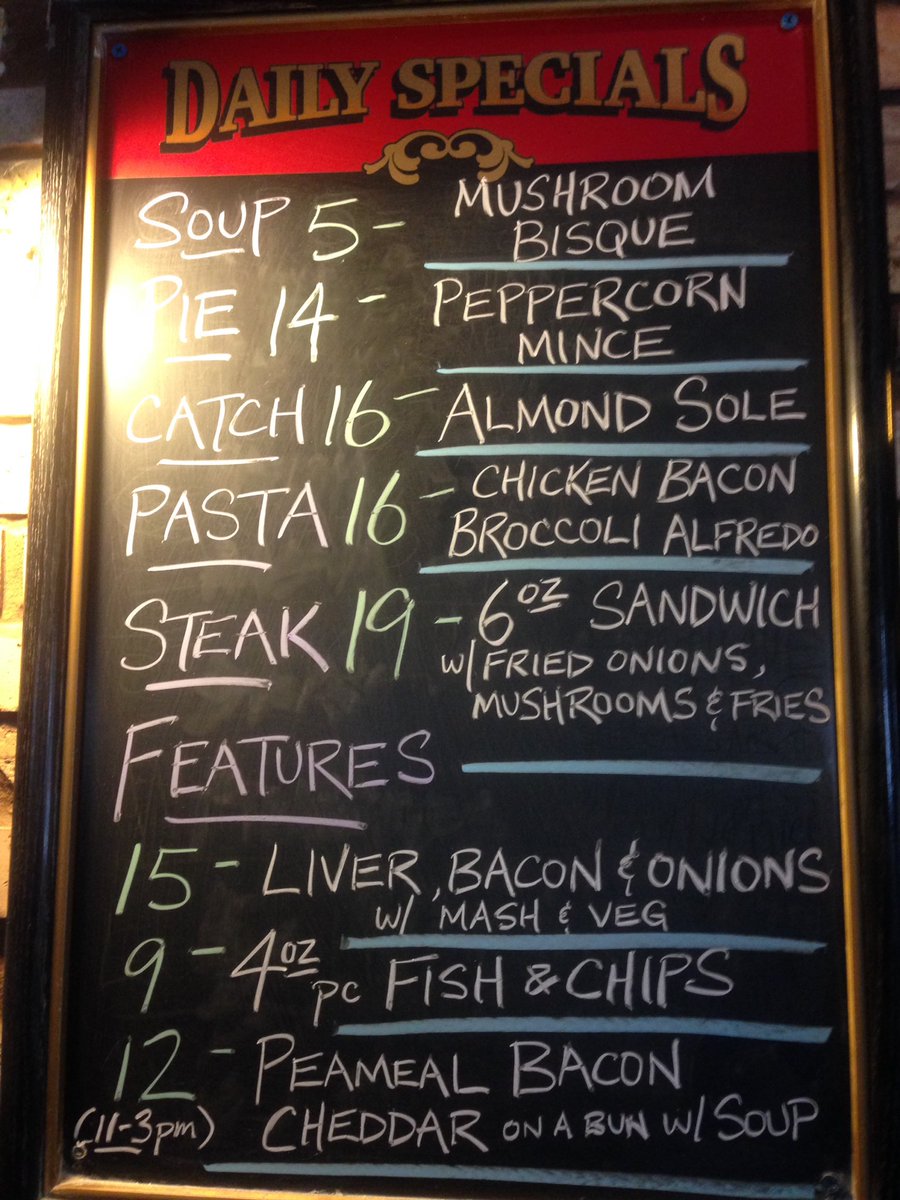 DAILY SPECIALS
SOUP 5 - MUSHROOM
BISQUE
PIE 14 - PEPPERCORN
MINCE
CATCH 16 - ALMOND SOLE
PASTA 16 - CHICKEN BACON
BROCCOLI ALFREDO
STEAK 19 - 6OZ SANDWICH
W/ FRIED ONIONS,
MUSHROOMS & FRIES
FEATURES
15 - LIVER, BACON & ONIONS
W/ MASH & VEG
9 - 4OZ PC FISH & CHIPS
12 - PEAMEAL BACON
(11-3pm) CHEDDAR ON A BUN W/ SOUP